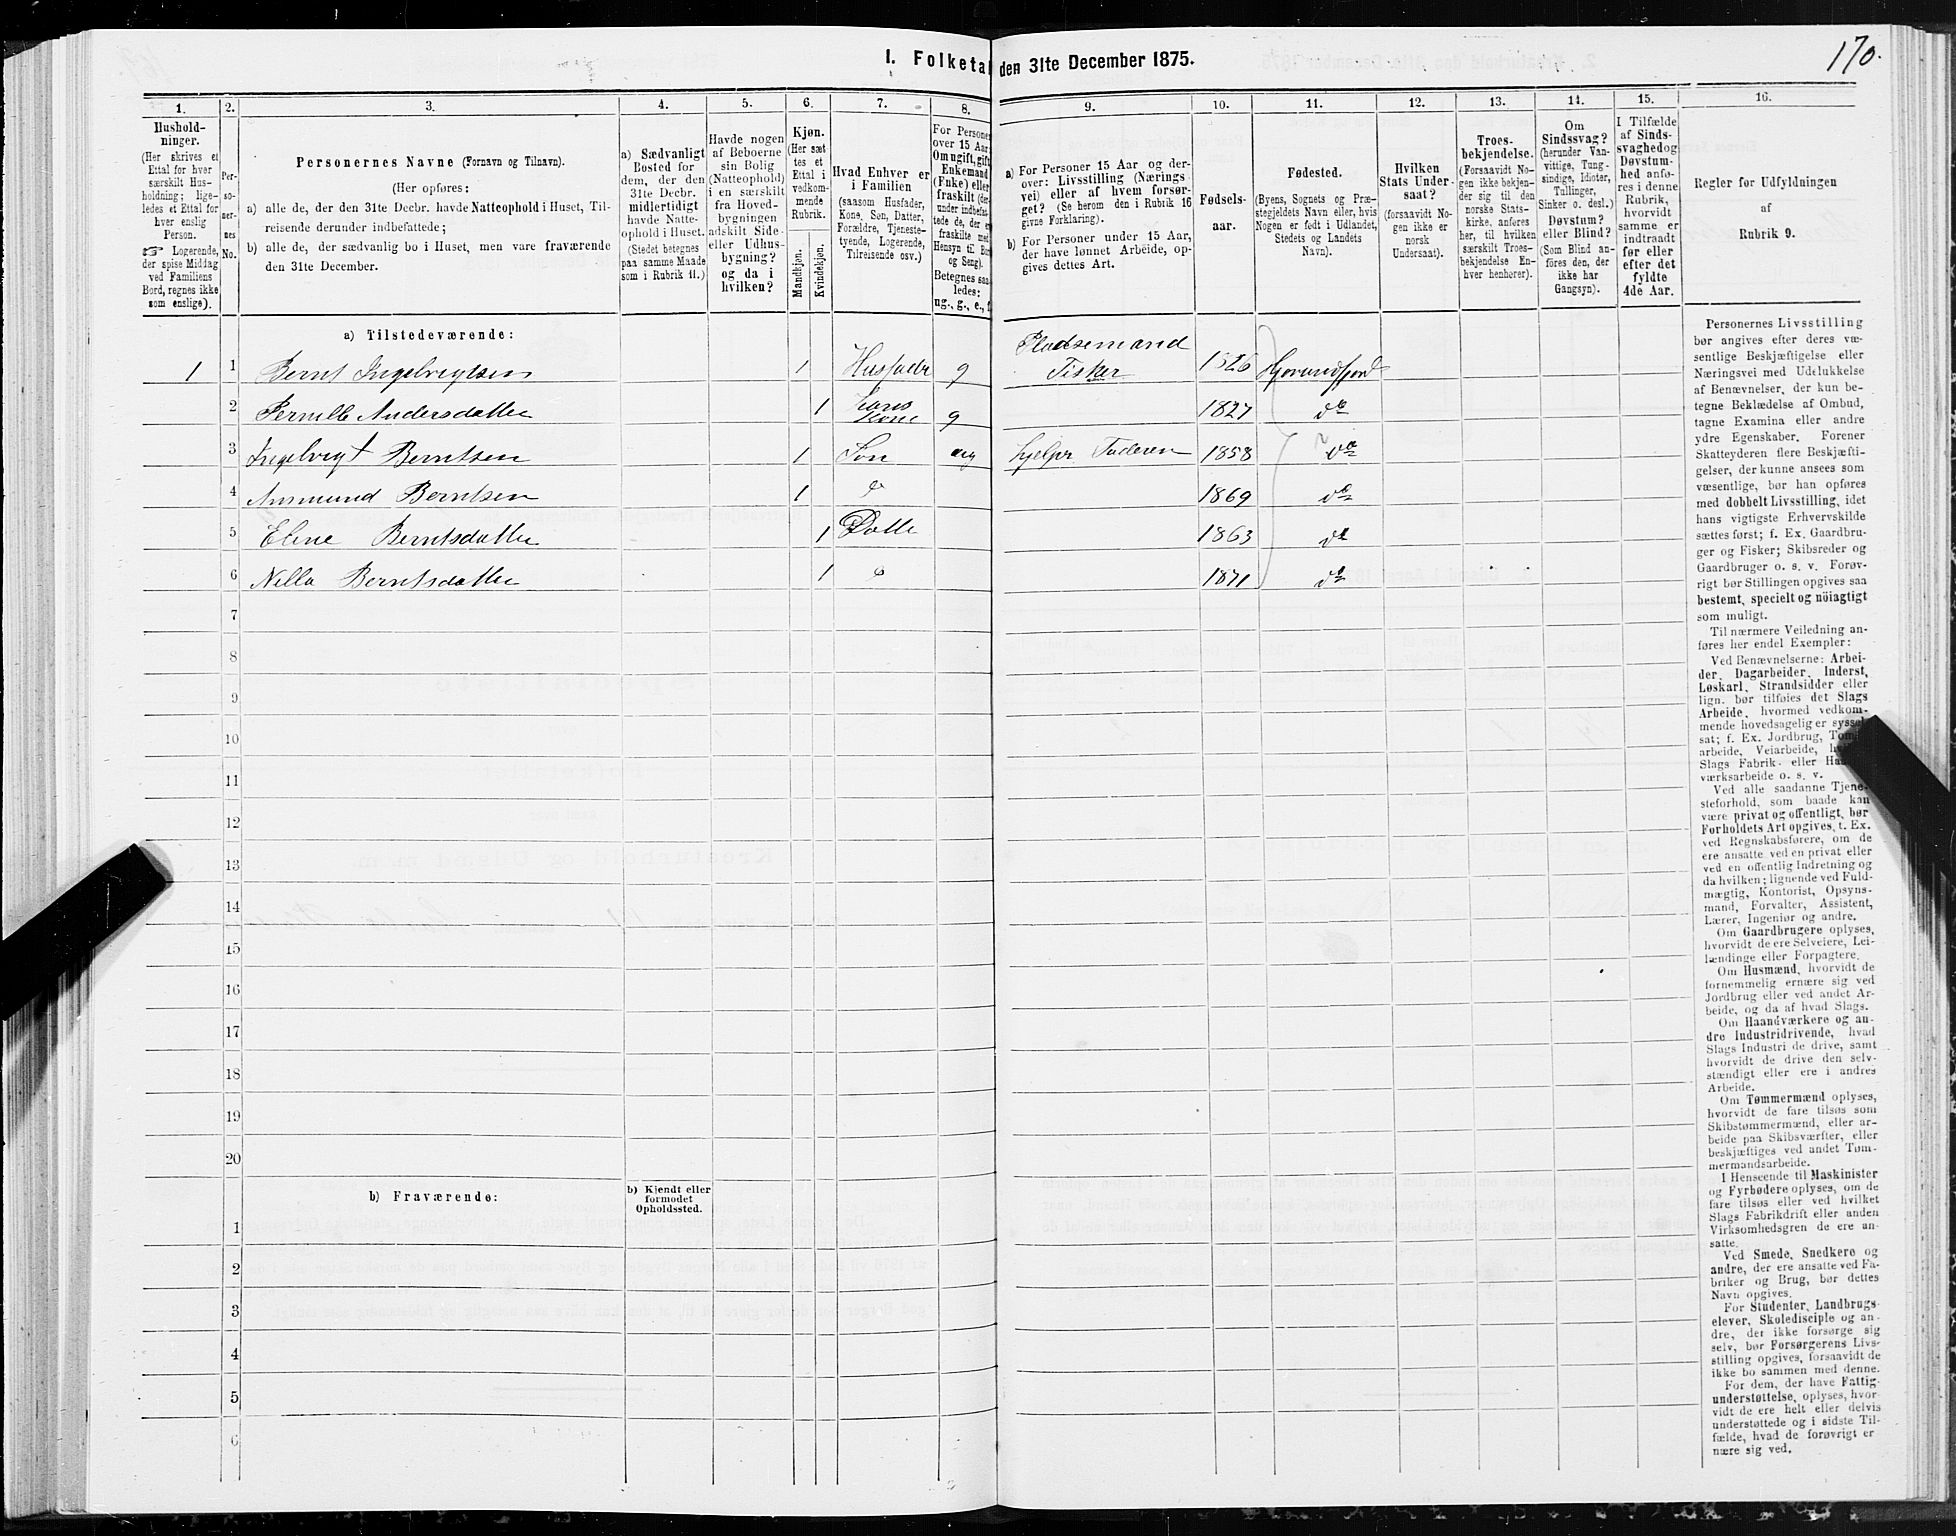 170.
I. Folketal den 31te December 1875.
1. 2. 3. 4. 5. 6. 7. 8. 9. 10. 11. 12. 13. 14. 15. 16.
Hushold-
ninger.
(Her skrives et
Ettal for hver
særskilt Hus-
holdning; lige-
ledes et Ettal for
hver enslig
Person.
☞ Logerende,
der spise Middag
ved Familiens
Bord, regnes ikke
som enslige).
Per-
so-
ner-
nes
No.
Personernes Navne (Fornavn og Tilnavn).
(Her opføres:
a) alle de, der den 31te Decbr. havde Natteophold i Huset, Til-
reisende derunder indbefattede;
b) alle de, der sædvanlig bo i Huset, men vare fraværende
den 31te December.
a) Sædvanligt
Bosted for
dem, der den
31te Decbr.
midlertidigt
havde Natte-
ophold i Huset.
(Stedet betegnes
paa samme Maade
som i Rubrik 11.)
Havde nogen
af Beboerne
sin Bolig
(Natteophold)
i en særskilt
fra Hoved-
bygningen
adskilt Side-
eller Udhus-
bygning?
og da i
hvilken?
Kjøn.
(Her sæt
tes et
Ettal i
vedkom-
mende
Rubrik.
Mandkjøn.
Kvindekjøn.
Hvad Enhver er
i Familien
(saasom Husfader,
Kone, Søn, Datter,
Forældre, Tjeneste-
tyende, Logerende,
Tilreisende osv.)
For Personer
over 15 Aar:
Om ugift, gift,
Enkemand
(Enke) eller
fraskilt (der-
under indbefat-
tede de, der ere
fraskilte med
Hensyn til Bord
og Seng).
Betegnes saa-
ledes:
ug., g., e., f.
a) For Personer 15 Aar og der-
over: Livsstilling (Nærings
vei) eller af hvem forsør-
get? (Se herom den i Rubrik 16
givne Forklaring).
b) For Personer under 15 Aar,
der have lønnet Arbeide, op-
gives dettes Art.
Fødsels-
aar.
Fødested.
(Byens, Sognets og Præ-
stegjeldets Navn eller, hvis
Nogen er født i Udlandet,
Stedets og Landets
Navn).
Hvilken
Stats Under-
saat?
(forsaavidt No-
gen ikke er
norsk
Undersaat).
Troes-
bekjendelse.
(Forsaavidt No-
gen ikke bekjen-
der sig til den
norske Stats-
kirke, anføres
her, til hvilken
særskilt Troes-
bekjendelse En-
hver henhører).
Om
Sindssvag?
(herunder Van-
vittige, Tung-
sindige, Idioter,
Tullinger,
Sinker o. desl.)
Døvstum?
eller Blind?
(Som Blind an-
føres den, der
ikke har
Gangsyn).
I Tilfælde
af Sinds-
svaghed og
Døvstum-
hed anfø-
res i denne
Rubrik,
hvorvidt
samme er
indtraadt
før eller
efter det
fyldte
4de Aar.
Regler for Udfyldningen
af
Rubrik 9.
a) Tilstedeværende:
1 1 Bernt Ingelvigtsen 1 Husfader g Pladsemand Fisker 1826 Hjørundfjord
2 Pernille Andersdatter 1 hans Kone g 1827 do
3 Ingelvigt Berntsen 1 Søn ug hjelper Faderen 1858 do
4 Anmund Berntsen 1 do 1869 do
5 Eline Berntsdatter 1 Datte 1863 do
6 Nille Berntsdatter 1 do 1871 do
7
8
9
10
11
12
13
14
15
16
17
18
19
20
b) Fraværende:
b) Kjendt eller
formodet
Opholdssted.
1
2
3
4
5
6
Personernes Livsstilling
bør angives efter deres væ-
sentlige Beskjæftigelse eller
Næringsvei med Udelukkelse
af Benævnelser, der kun be-
tegne Beklædelse af Ombud,
tagne Examina eller andre
ydre Egenskaber. Forener
Skatteyderen flere Beskjæfti-
gelser, der kunne ansees som
væsentlige, bør han opføres
med dobbelt Livsstilling, idet
hans vigtigste Erhvervskilde
sættes først; f. Ex. Gaardbru-
ger og Fisker; Skibsreder og
Gaardbruger o. s. v. Forøv-
rigt bør Stillingen opgives saa
bestemt, specielt og nöiagtigt
som muligt.
Til nærmere Veiledning an-
føres her endel Exempler:
Ved Benævnelserne: Arbei-
der, Dagarbeider, Inderst,
Løskarl, Strandsidder eller
lign. bør tilføies det Slags
Arbeide, hvormed vedkom-
mende hovedsagelig er syssel-
sat; f. Ex. Jordbrug, Tom-
arbeide, Veiarbeide, hvilket
Slags Fabrik- eller Haand-
værksarbeide o. s. v.
Ved alle saadanne Tjene-
steforhold, som baade kan
være privat og offentligt, bør
Forholdets Art opgives, t. Ex.
ved Regnskabsførere, om de
ere ansatte ved en privat eller
ved en offentlig Indretning og
da hvilken; lignende ved Fuld-
mægtig, Kontorist, Opsyns-
mand, Forvalter, Assistent,
Lærer, Ingeniør og andre.
Om Gaardbrugere oplyses,
hvorvidt de ere Selveiere, Lei-
lændinge eller Forpagtere.
Om Husmænd, hvorvidt de
fornemmelig ernære sig ved
Jordbrug eller ved andet Ar-
beide, og da af hvad Slags.
Om Haandværkere og an-
dre Industridrivende, hvad
Slags Industri de drive, samt
hvorvidt de drive den selv-
stændigt eller ere i andres
Arbeide.
Om Tømmermænd oplyses,
hvorvidt de fare tilsøs som
Skibstømmermænd, eller ar-
beide paa Skibsværfter, eller
beskjæftiges ved andet Tøm-
mermandsarbeide.
I Henseende til Maskinister
og Fyrbødere oplyses, om de
fare tilsøs eller ved hvilket
Slags Fabrikdrift eller anden
Virksomhedsgren de ere an-
satte.
Ved Smede, Snedkere og
andre, der ere ansatte ved Fa-
briker og Brug, bør dettes
Navn opgives.
For Studenter, Landbrugs-
elever, Skoledisciple og an-
dre, der ikke forsørge sig
selv, bør Forsørgerens Livs-
stilling opgives, forsaavidt de
ikke bo sammen med denne.
For dem, der have Fattig-
understøttelse, oplyses, hvor-
vidt de ere helt eller delvis
understøttede og i sidste Til-
fælde, hvad de forøvrigt er
nære sig ved.